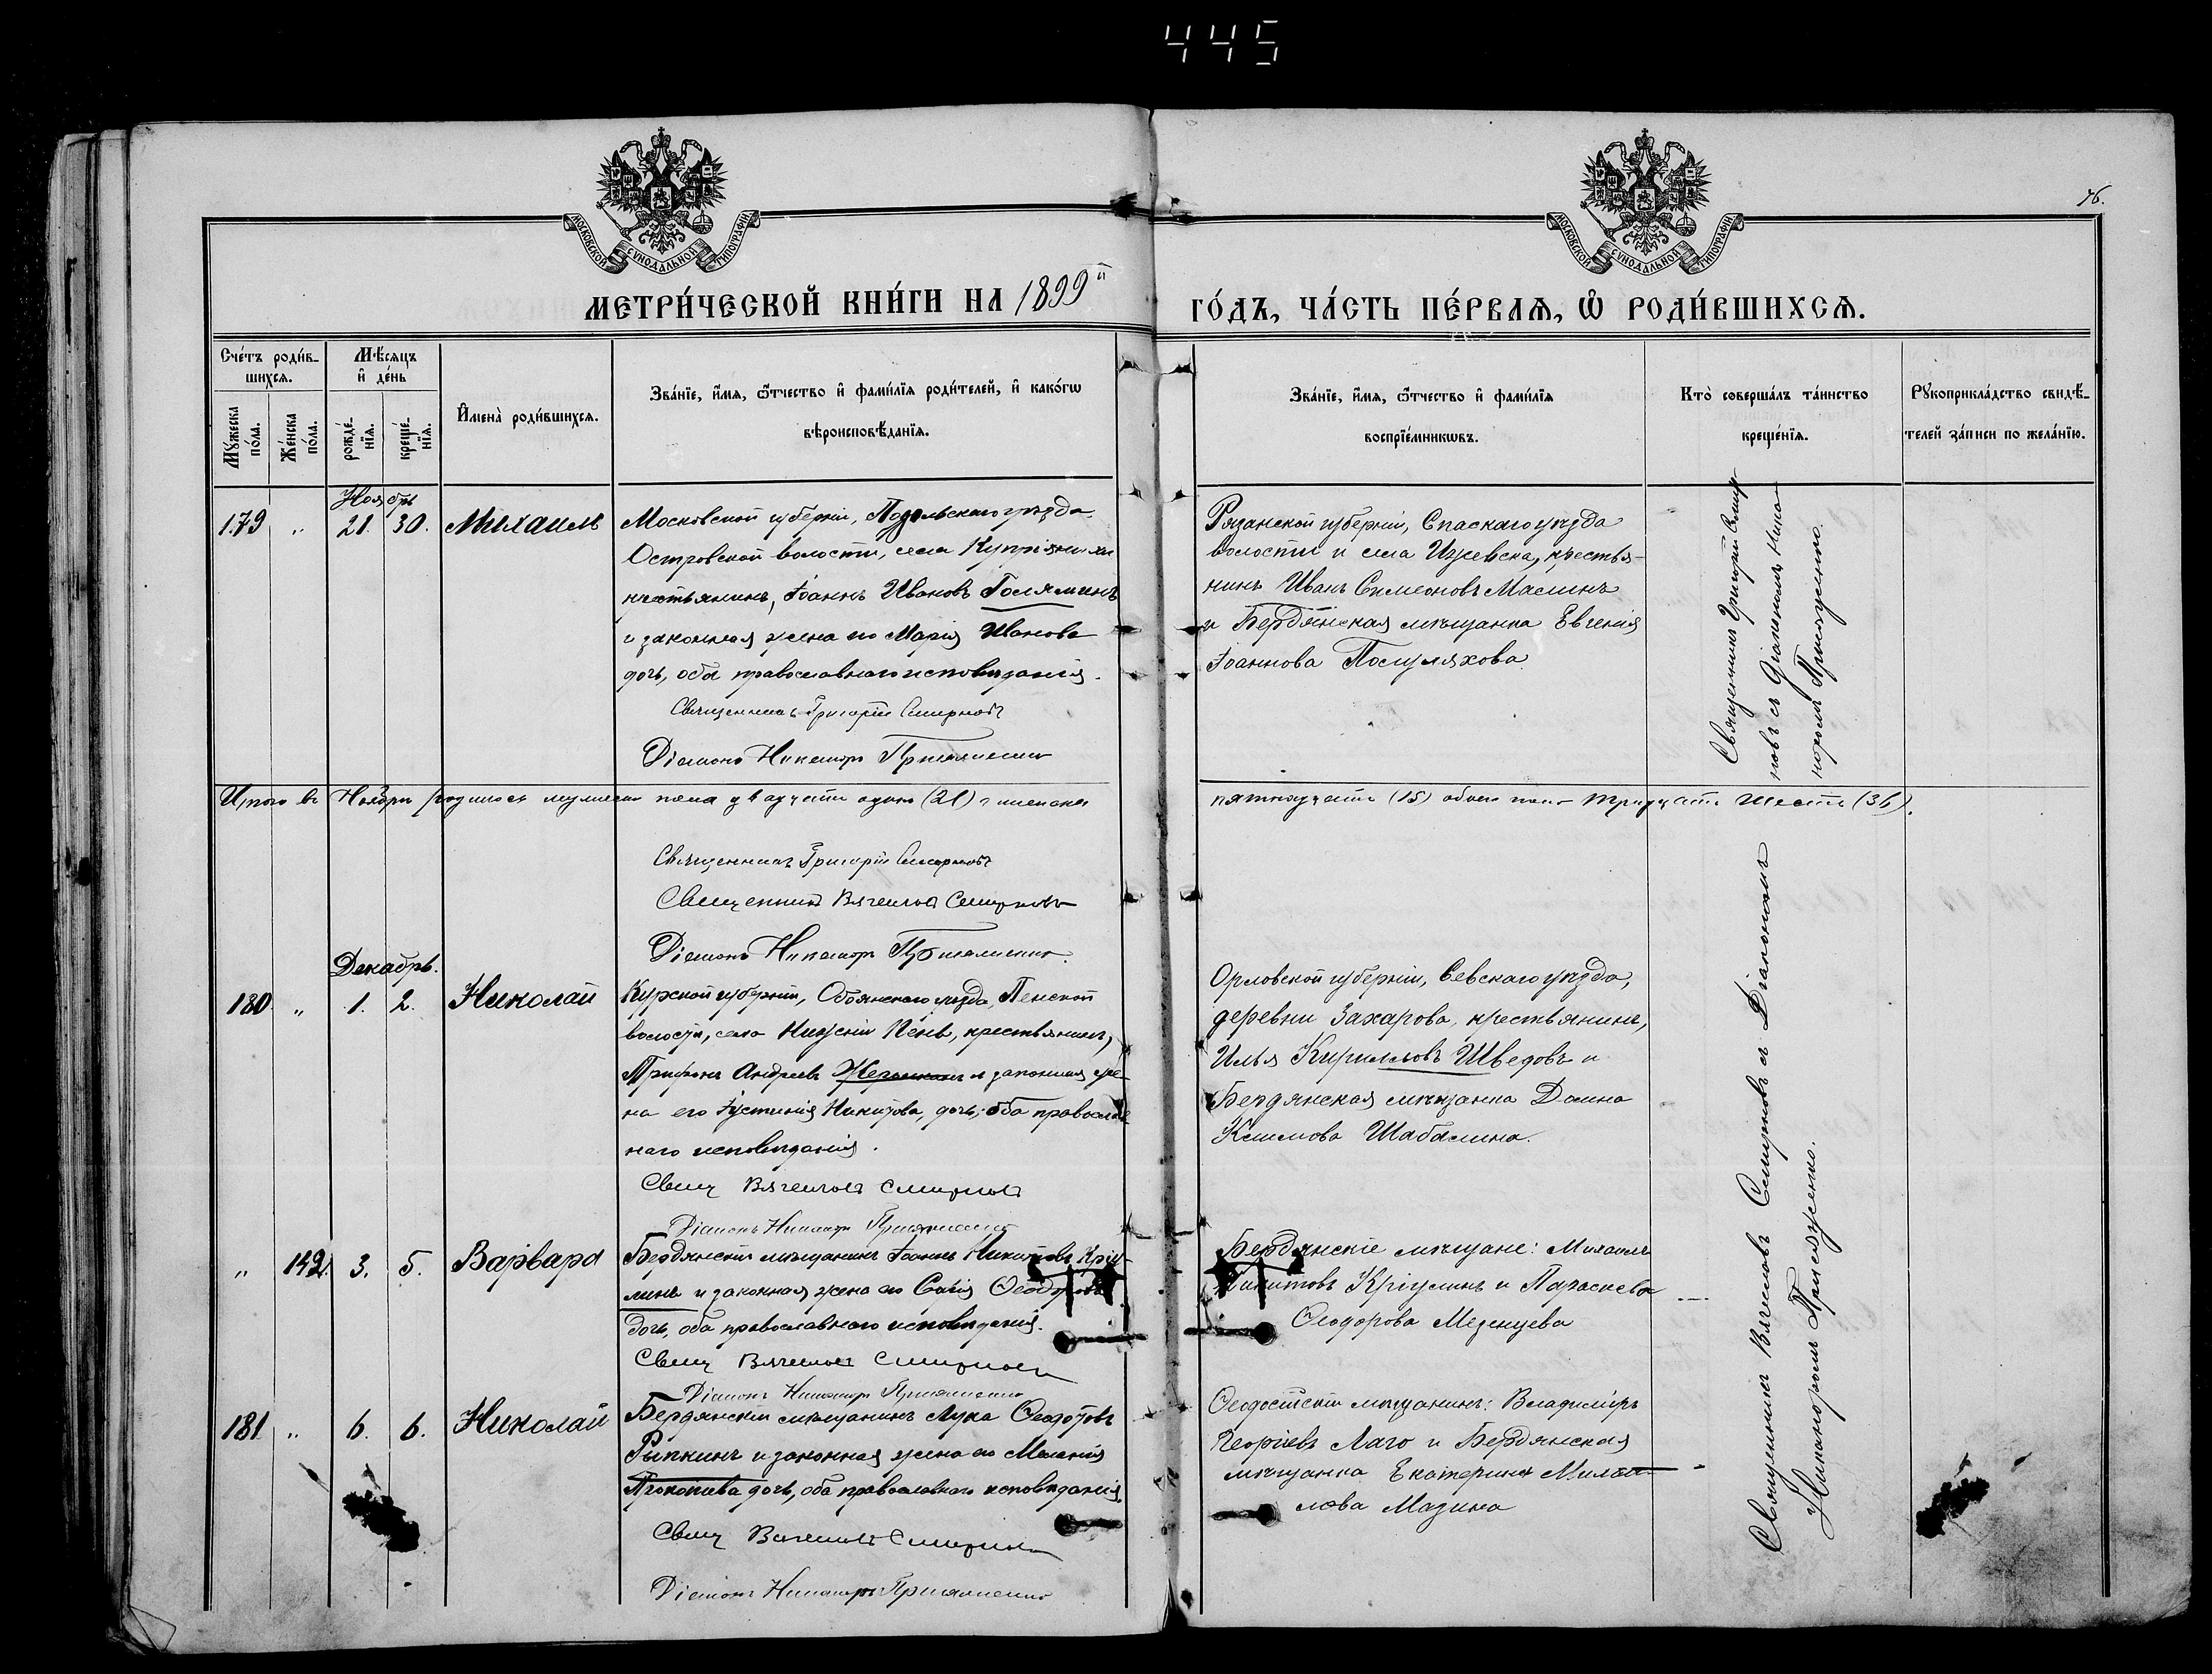 445
76.
МОСКОВСКОЙ СУНОДАЛЬНОЙ ТИПОГРАФІИ
МОСКОВСКОЙ СУНОДАЛЬНОЙ ТИПОГРАФІИ
МЕТРИ́ЧЕСКОЙ КНИ́ГИ НА 1899й
ГО́ДЪ, ЧА́СТЬ ПЕ́РВАѦ, Ѡ РОДИ́ВШИХСѦ.
Сче́тъ роди́в-
шихсѧ.
Мꙋ́жеска
по́ла.
Же́нска
по́ла.
Мѣ́сѧцъ
и҆ де́нь
рожде́-
нїѧ.
креще́-
нїѧ.
И҆мена̀ роди́вшихсѧ.
Зва́нїе, и҆́мѧ, ѻ҆́тчество и҆ фами́лїѧ роди́телей, и҆ како́гѡ
вѣроисповѣ́данїѧ.
Зва́нїе, и҆́мѧ, ѻ҆́тчество и҆ фами́лїѧ
воспрїе́мникѡвъ.
Кто̀ соверша́лъ та́инство
креще́нїѧ.
Рꙋкоприкла́дство свидѣ́-
телей за́писи по жела́нїю.
Ноябрь
179 " 21. 30. Михаилъ
Московской губерніи, Подольскаго уѣзда
Островской волости, села
крестьянинъ, Іоаннъ Ивановъ Голяминъ
и законная жена его Марія Иванова
дочь, оба православнаго исповѣданія.
Священникъ Григорій Смирновъ
Діаконъ Никаноръ Присяженко
Рязанской губерніи, Спаскаго уѣзда
волости и села Ижевска, крестья-
нинъ Иванъ Симеоновъ Маслинъ
и Бердянская мѣщанка Евгенія
Іоаннова Послуляхова
Священникъ Григорій Смир
новъ съ Діакономъ Ника
норомъ Присяженко.
Итого въ Ноябрѣ родилось мужеска пола двадцать одинъ (21) и женска
пятнадцать (15) обоего пола тридцать шесть (36).
Священникъ Григорій Смирновъ
Священникъ Вячеславъ Смирновъ
Діаконъ Никаноръ Присяженко.
Декабрь.
180 " 1. 2. Николай
Курской губерніи, Обоянскаго уѣзда, Пенской
волости, села Нижній Пены, крестьянинъ,
Трифонъ Андреевъ и законная же-
на его Іустинія Никитова, дочь, оба православ
наго исповѣданія.
Свящ Вячеславъ Смирновъ
Діаконъ Никаноръ Присяженко
Орловской губерніи, Севскаго уѣзда,
деревни Захарова, крестьянинъ,
Илья Кирилловъ Шведовъ и
Бердянская мѣщанка Домна
Климова Шабалина.
" 142. 3. 5. Варвара
Бердянскій мѣщанинъ Іоаннъ Никитовъ Кріу-
линъ и законная жена его Софія Ѳеодорова
дочь, оба православнаго исповѣданія.
Свящ Вячеславъ Смирновъ
Діаконъ Никаноръ Присяженко
Бердянскіе мѣщане: Михаилъ
Никитовъ Кріулинъ и Параскева
Ѳеодорова Мезенцева
181 " 6. 6. Николай
Бердянскій мѣщанинъ Лука Ѳеодотовъ
Рыпкинъ и законная жена его Меланія
Прокопіева дочь, оба православнаго исповѣданія
Свящ Вячеславъ Смирновъ
Діаконъ Никаноръ Присяженко
Ѳеодосійскій мѣщанинъ: Владиміръ
Георгіевъ Лаго и Бердянская
мѣщанка Екатерина Михаи-
лова Мазина
Священникъ Вячеславъ Смирновъ съ Діакономъ
Никаноромъ Присяженко.